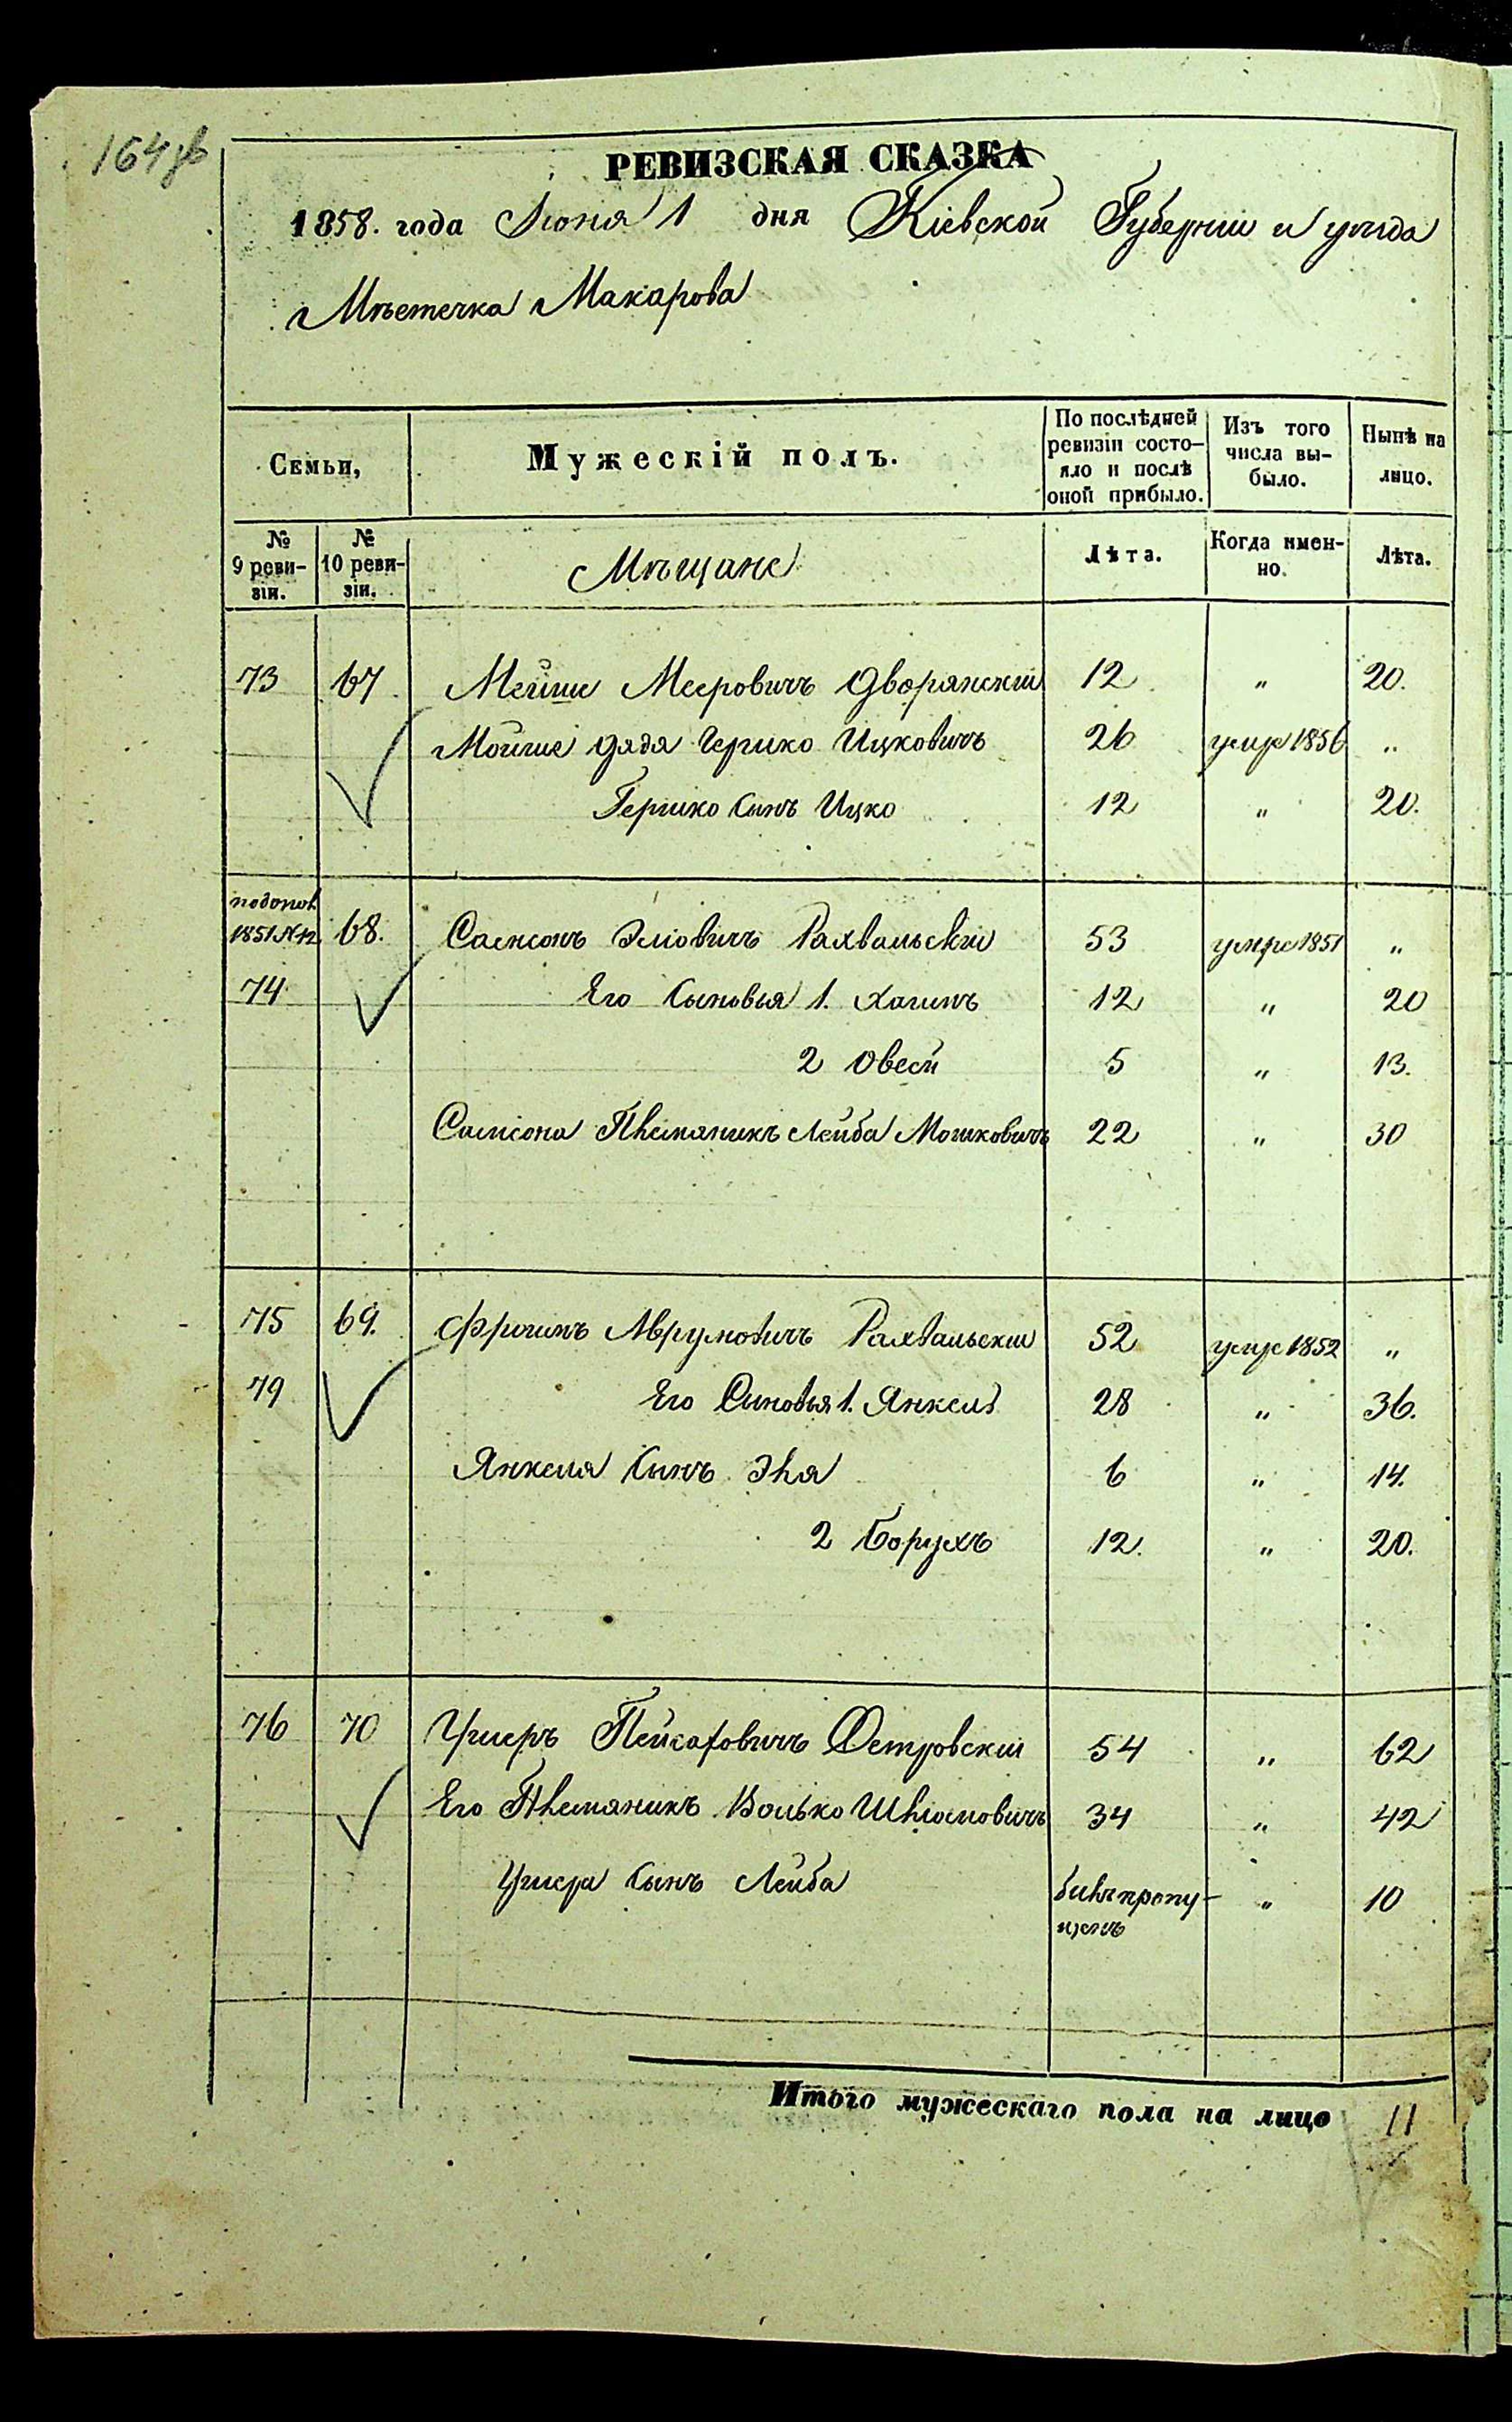 164
РЕВИЗСКАЯ СКАЗКА
1858. года Іюня 1 дня Кіевской Губерніи и уѣзда
Мѣстечка Макарова
Семьи,
Мужескій полъ.
По послѣдней ревизіи состо-
яло и послѣ оной прибыло.
Изъ того числа вы-
было.
Нынѣ на лицо.
№ 9 реви-
зіи.
№ 10 реви-
зіи.
Мѣщане
Лѣта.
Когда имен-
но.
Лѣта.
73 67 Мейше Мееровичъ Дворянскій 12 " 20.
Мойше дядя Гершко Ицковичъ 26 умре 1856 "
Гершко Сынъ Ицко 12 " 20.
1851 №12 68. Самсонъ Эліовичъ Рахвальскій 53 умре 1851 "
74 Его Сыновья 1. Хаимъ 12 " 20
2 Овсей 5 " 13.
Самсона Племяникъ Лейба Мошковичъ 22 " 30
75 69. Фроимъ Аврумовичъ Рахвальскій 52 умре 1852 "
79 Его Сыновья 1. Янкель 28 " 36.
Янкеля Сынъ Эля 6 " 14.
2 Борухъ 12. " 20.
76 70 Ушеръ Пейсаховичъ Островскій 54 " 62
Его Племяникъ Волько Шлюмовичъ 34 " 42
Ушера Сынъ Лейба былъ пропу-
щенъ " 10
Итого мужескаго пола на лицо 11